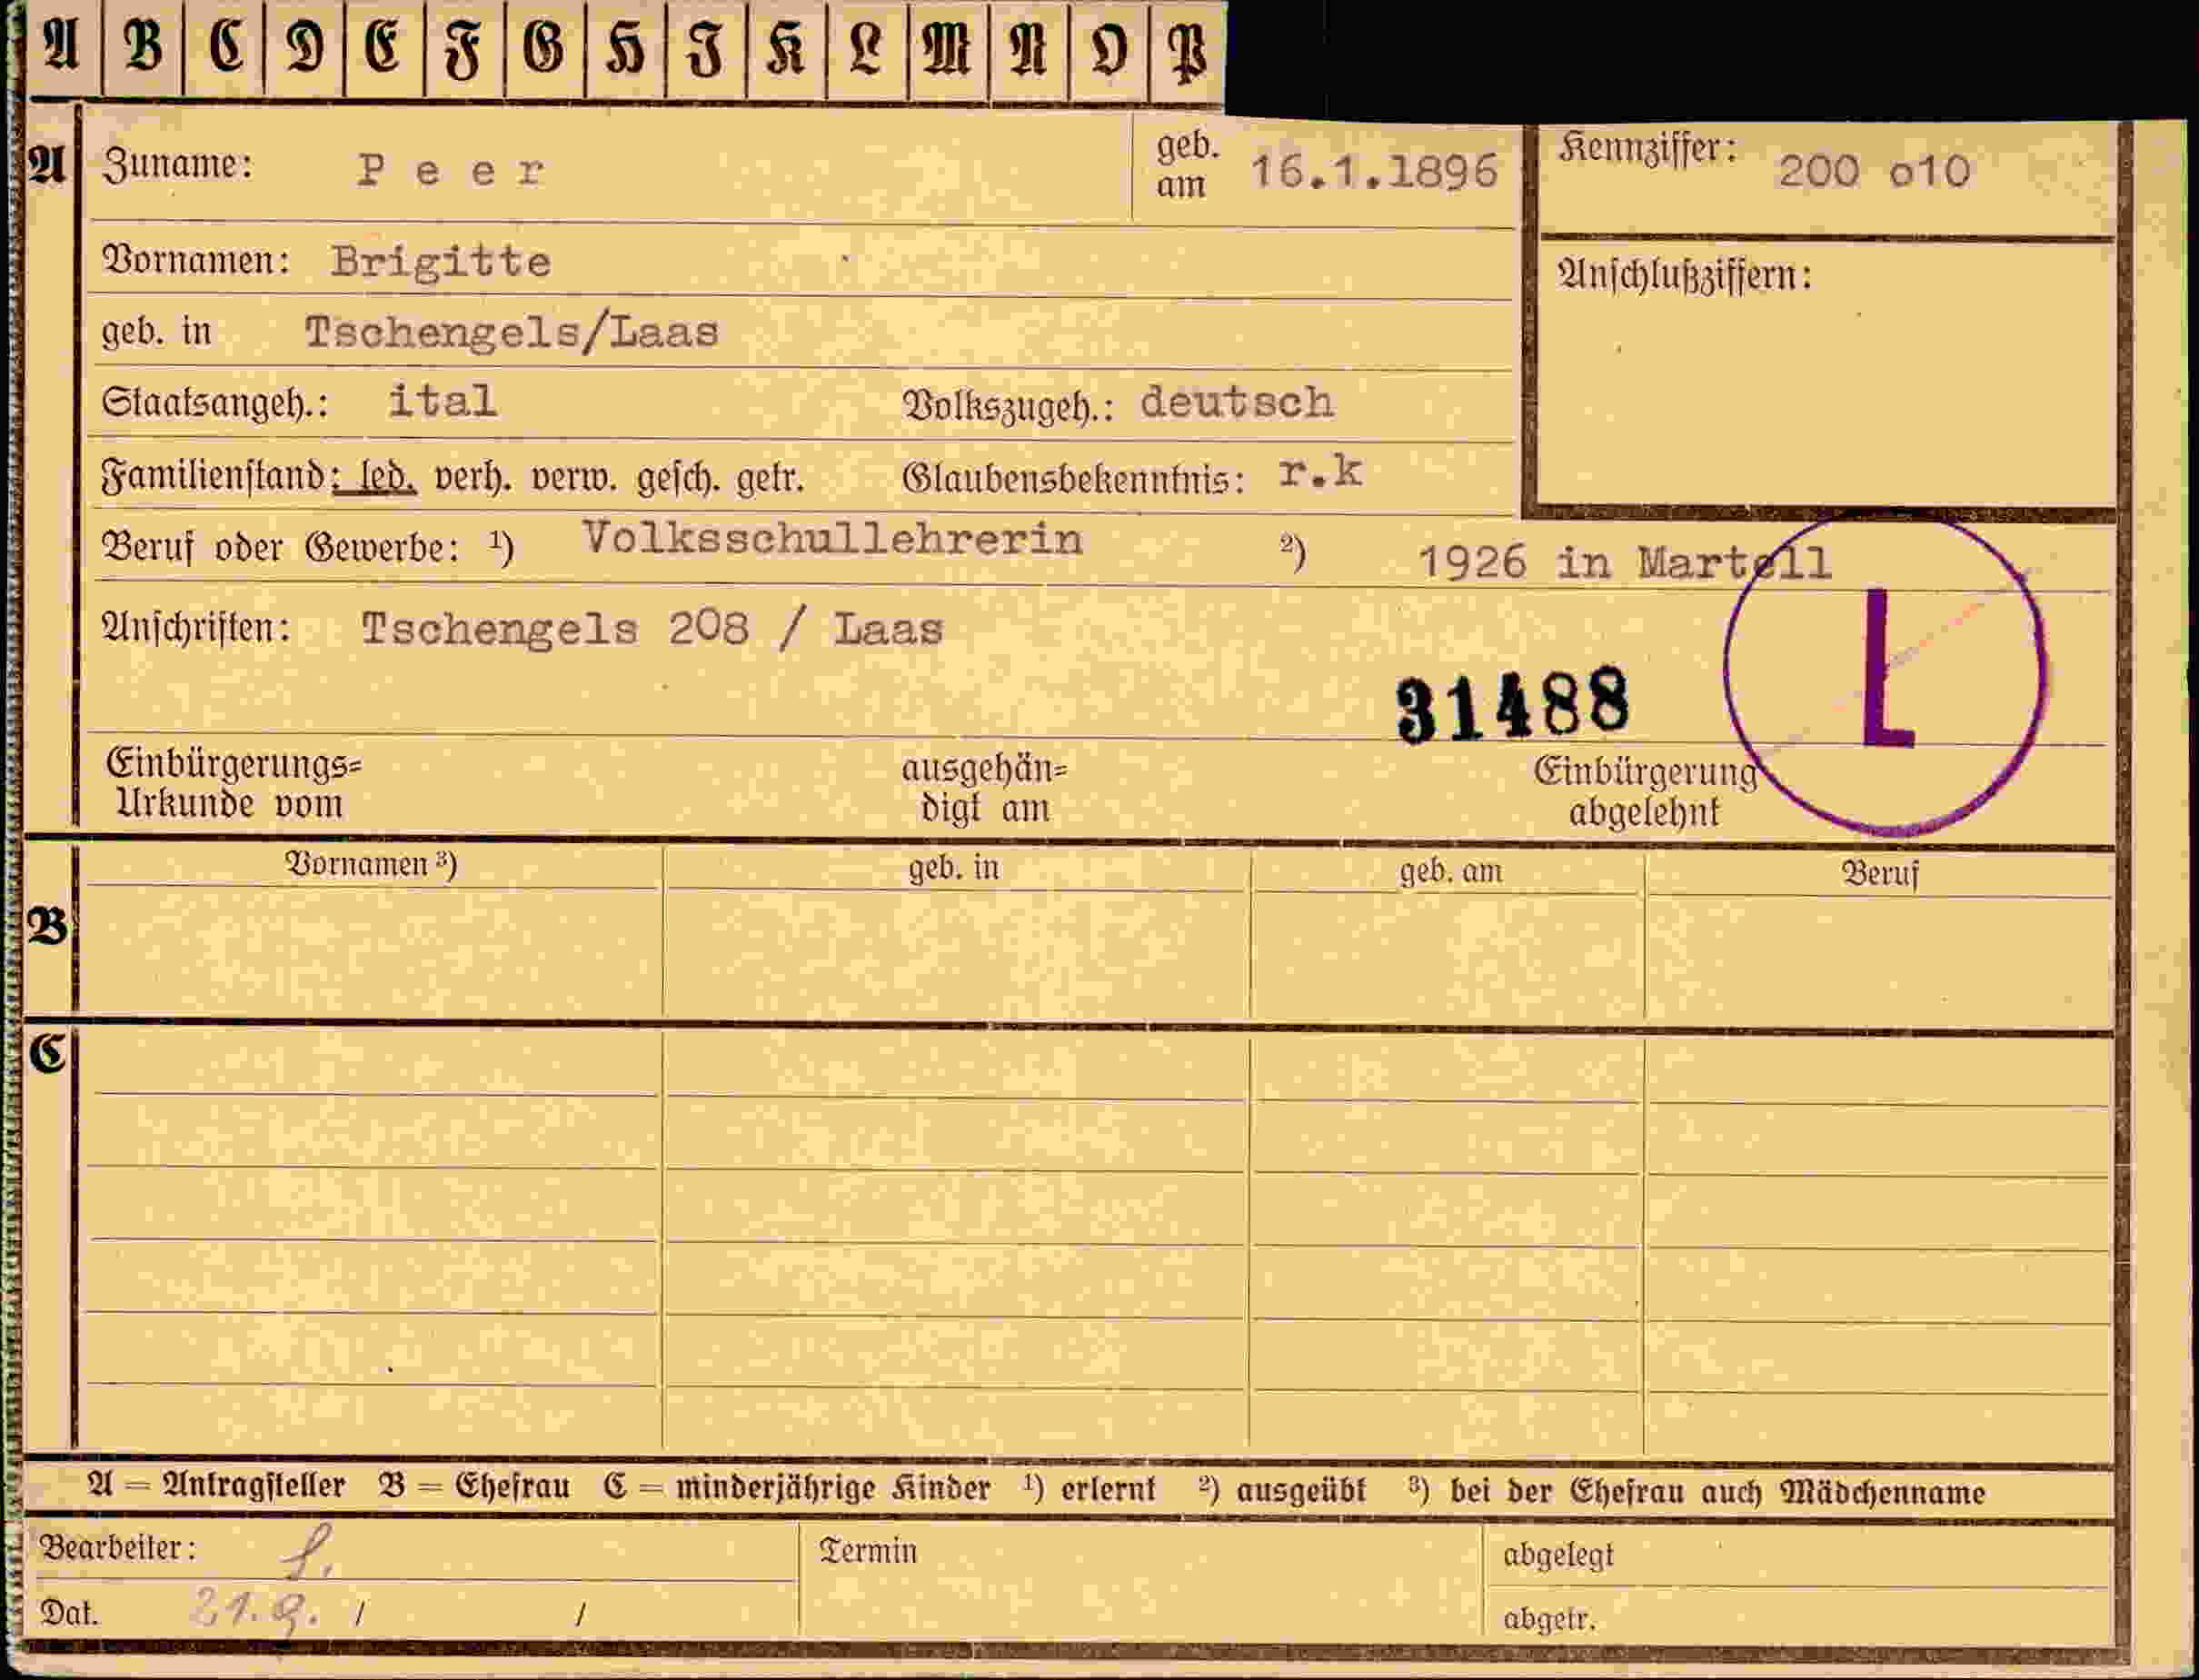 A B C D E F G H I K L M N O P
A Zuname: Peer geb. am 16.1.1896 Kennziffer: 200 o10
Vornamen: Brigitte
Anschlußziffern:
geb. in Tschengels/Laas
Staatsangeh.: ital Volkszugeh.: deutsch
Familienstand: led. verh. verw. gesch. getr. Glaubensbekenntnis: r.k
Beruf oder Gewerbe: ¹) Volksschullehrerin ²) 1926 in Martell
Anschriften: Tschengels 208 / Laas
L
31488
Einbürgerungs= ausgehän= Einbürgerung
Urkunde vom digt am abgelehnt
Vornamen ³) geb. in geb. am Beruf
B
C
A = Antragsteller B = Ehefrau C = minderjährige Kinder ¹) erlernt ²) ausgeübt ³) bei der Ehefrau auch Mädchenname
Bearbeiter: Termin abgelegt
Dat. 21.9. / / abgetr.